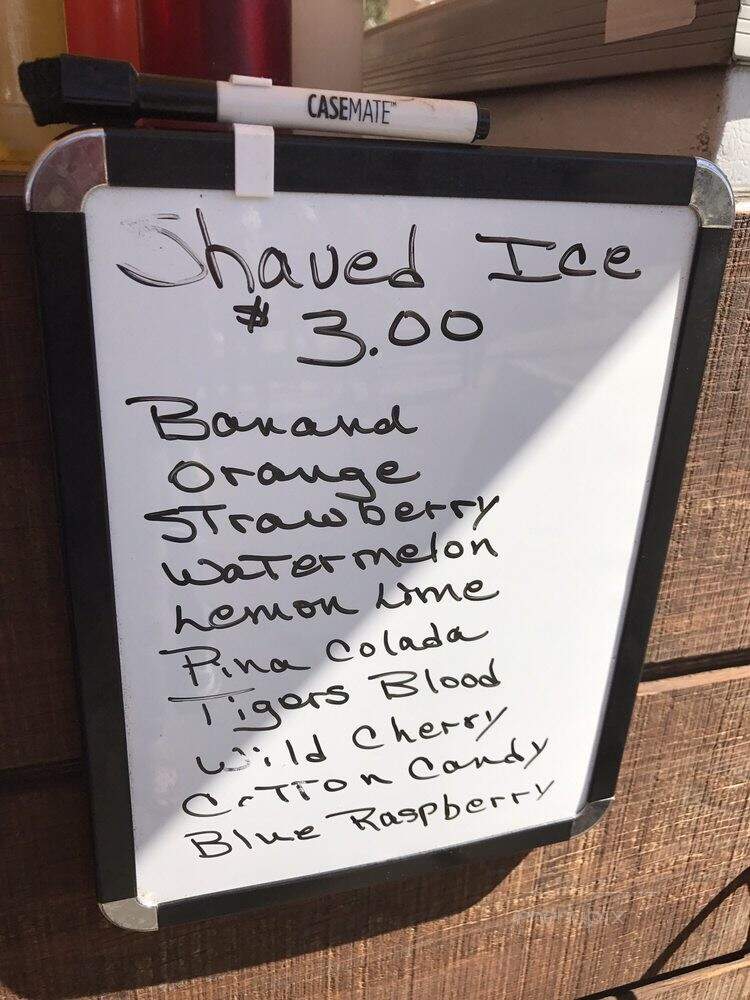 CASEMATE™
Shaved Ice
$3.00
Banana
Orange
Strawberry
Watermelon
Lemon Lime
Pina Colada
Tigers Blood
Wild Cherry
Cotton Candy
Blue Raspberry